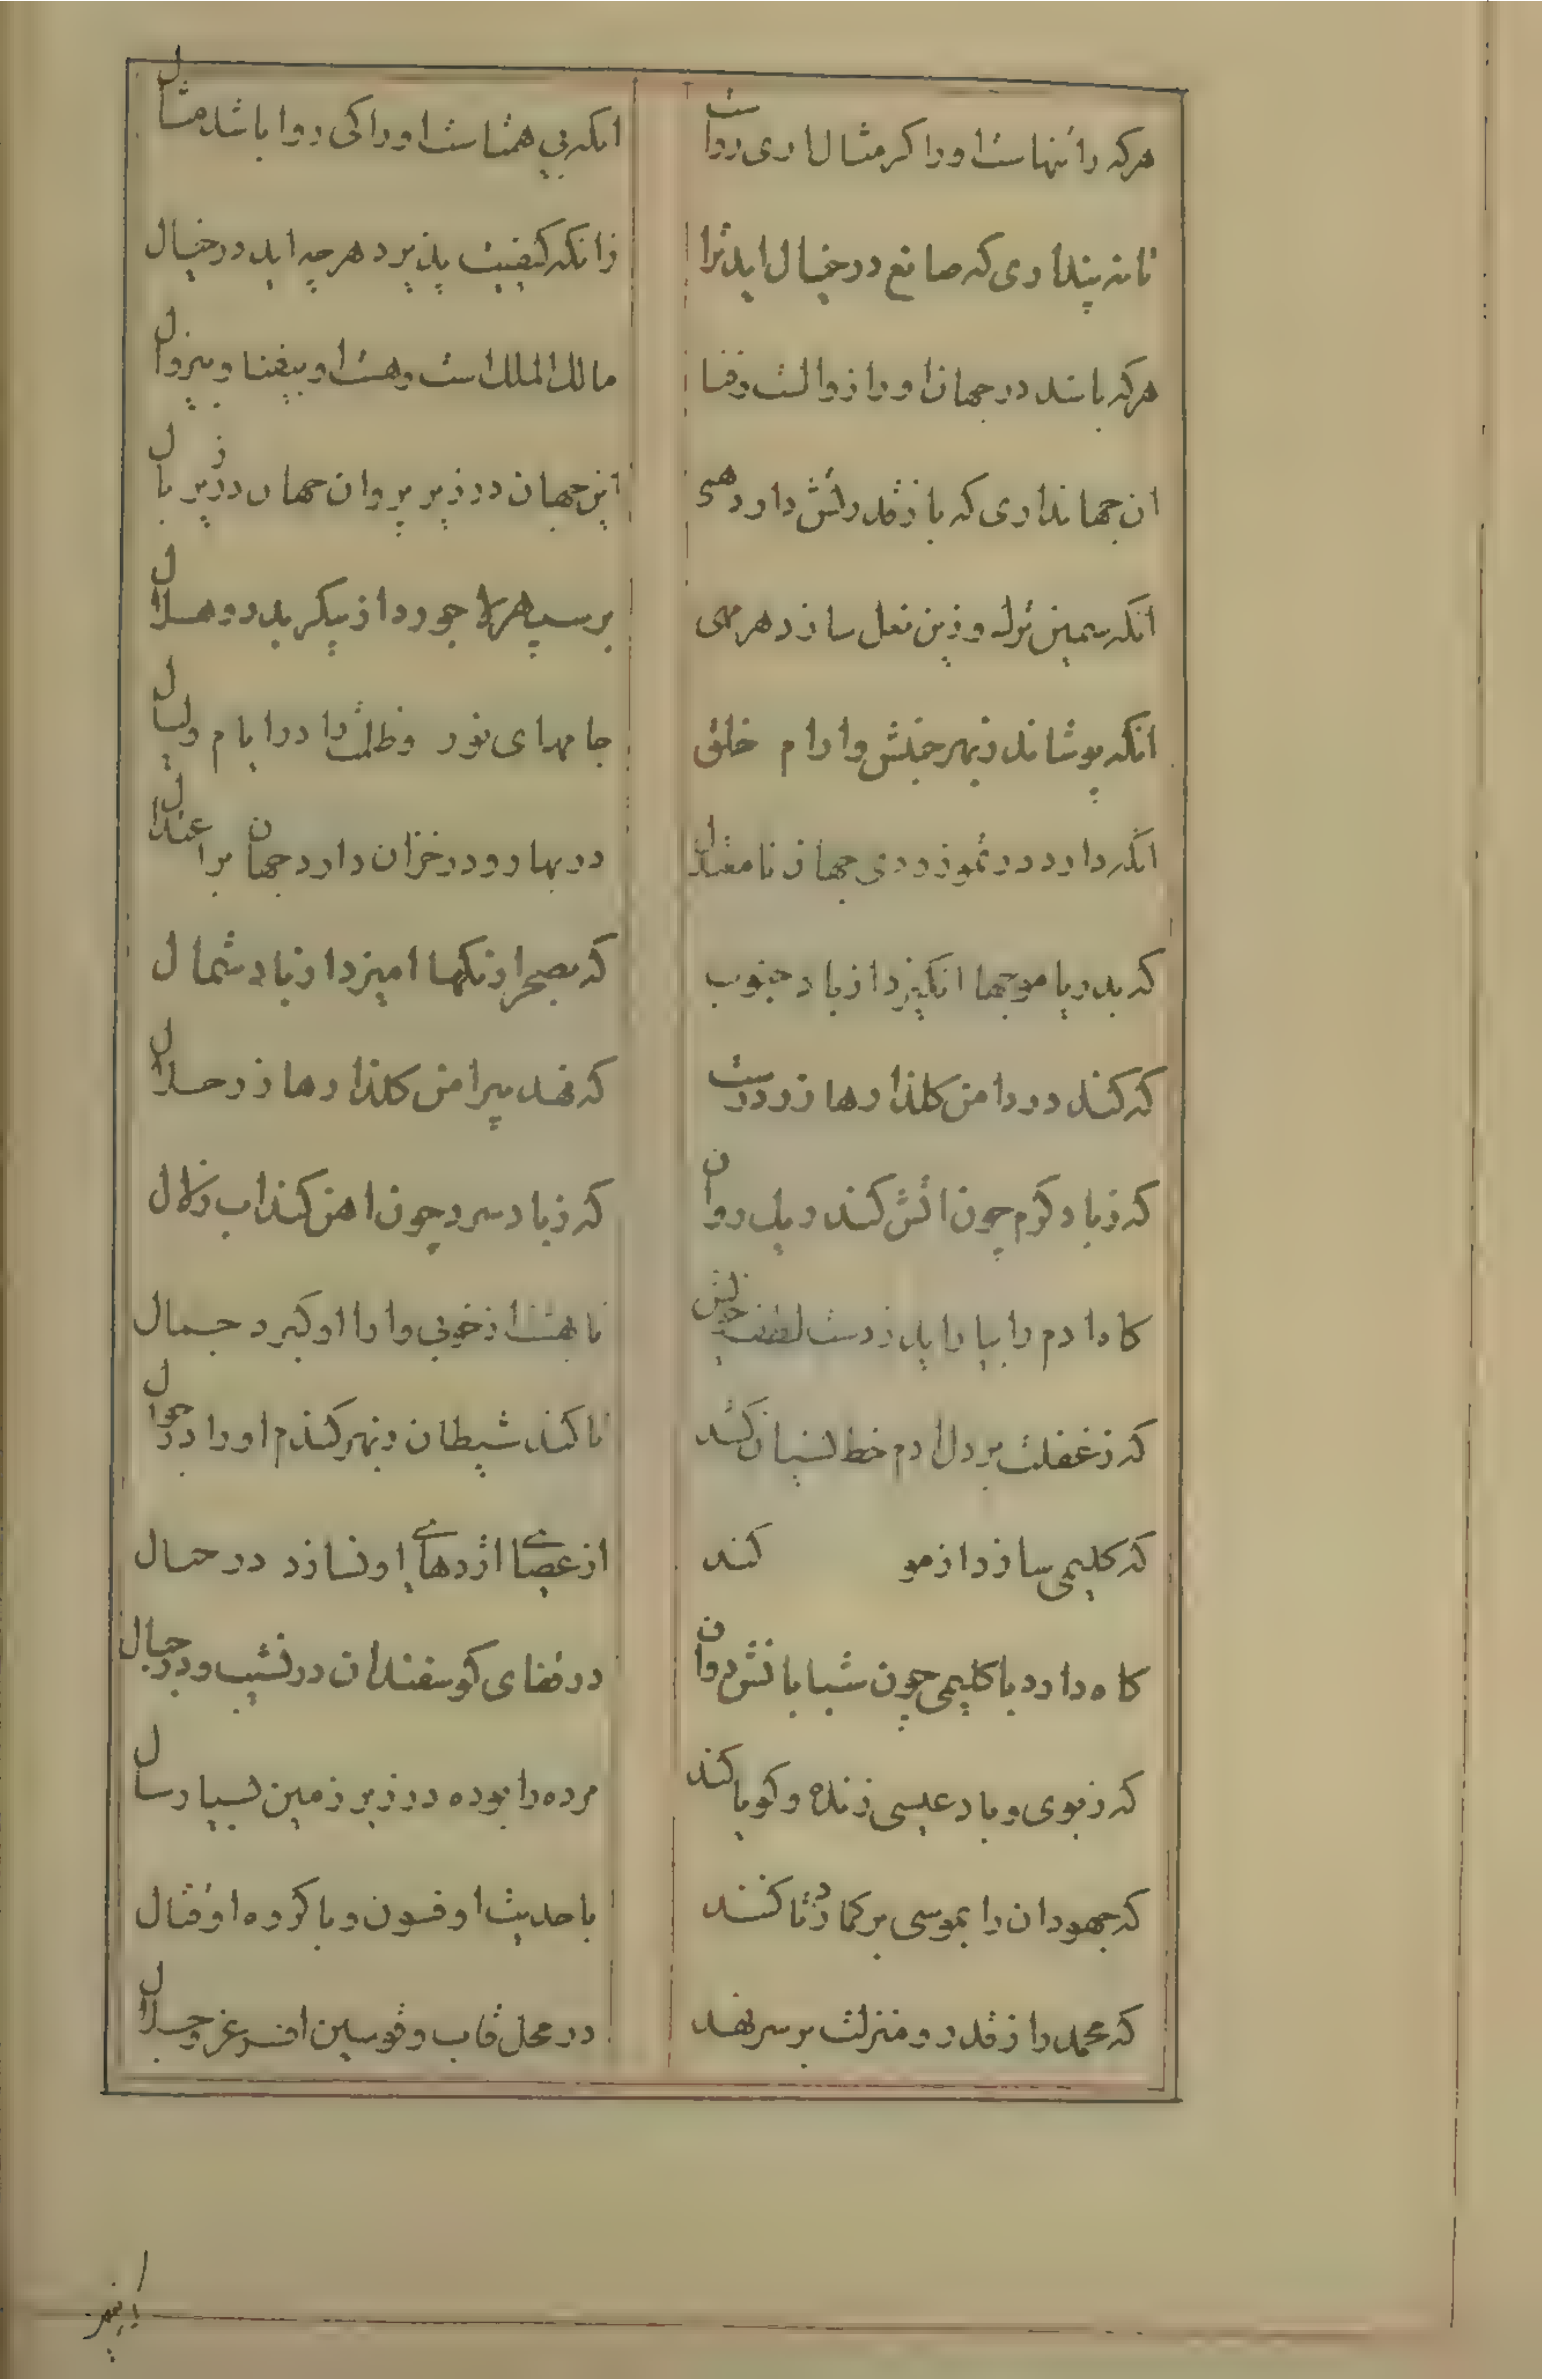 هرکه را تنهاست او را کر مثال اری رواست
انکه بی همتاست او را کی روا باشد مثال
تا نه پنداری که صانع در خیال اید ترا
زانکه کیفیت پذیرد هرچه اید در خیال
هرکه باشد در جهان او را زوالست و فنا
مالک الملک است و هست او بیفنا و بیزوال
ان جهانداری که باز قدرتش دارد همی
این جهان در زیر پر وان جهان در زیر بال
انکه سیمین ترک و زین نعل سازد هر مهی
بر سپهر لاجورد از پیکر بدر و هلال
انکه پوشاند زبهر جنبش وارام خلق
جامهای نور وظلمت را در ایام ولیال
انکه دارد در تموز و دی جهان نا معتدل
در بهار و در خزان دارد جهان بر اعتدال
که بدریا موجها انکیزد از باد جنوب
که بصحرا رنکها امیزد از باد شمال
که کند در دامن کلزارها زر درست
که نهد پیرامن کلزارها زر حلال
که زباد کرم چون اتش کند ریک روان
که زباد سرد چون اهن کند اب زلال
کاه ادم را بیاراید زدست لطف خویش
تا بهشت از خوبی وارا او کیرد جمال
که زغفلت بر دل ادم خط نسیان کشد
تا کند شیطان زبهر کندم او را در جوال
که کلیمی سازد از مو کند
از عصای اژدهای او نسازد در حال
کاه دارد با کلیمی چون شبابانش دوان
در قفای کوسفندان در نشیب و در جبال
که زبوی و باد عیسی زنده و کویا کند
مرده را بوده در زیر زمین بسیار سال
که جهودان را بموسی بر کمارد تا کنند
با حدیث او فسون و با کرده او قتال
که محمد را زقدر و منزلت بر سر نهد
در محل قاب و قوسین افسر عز و جلال